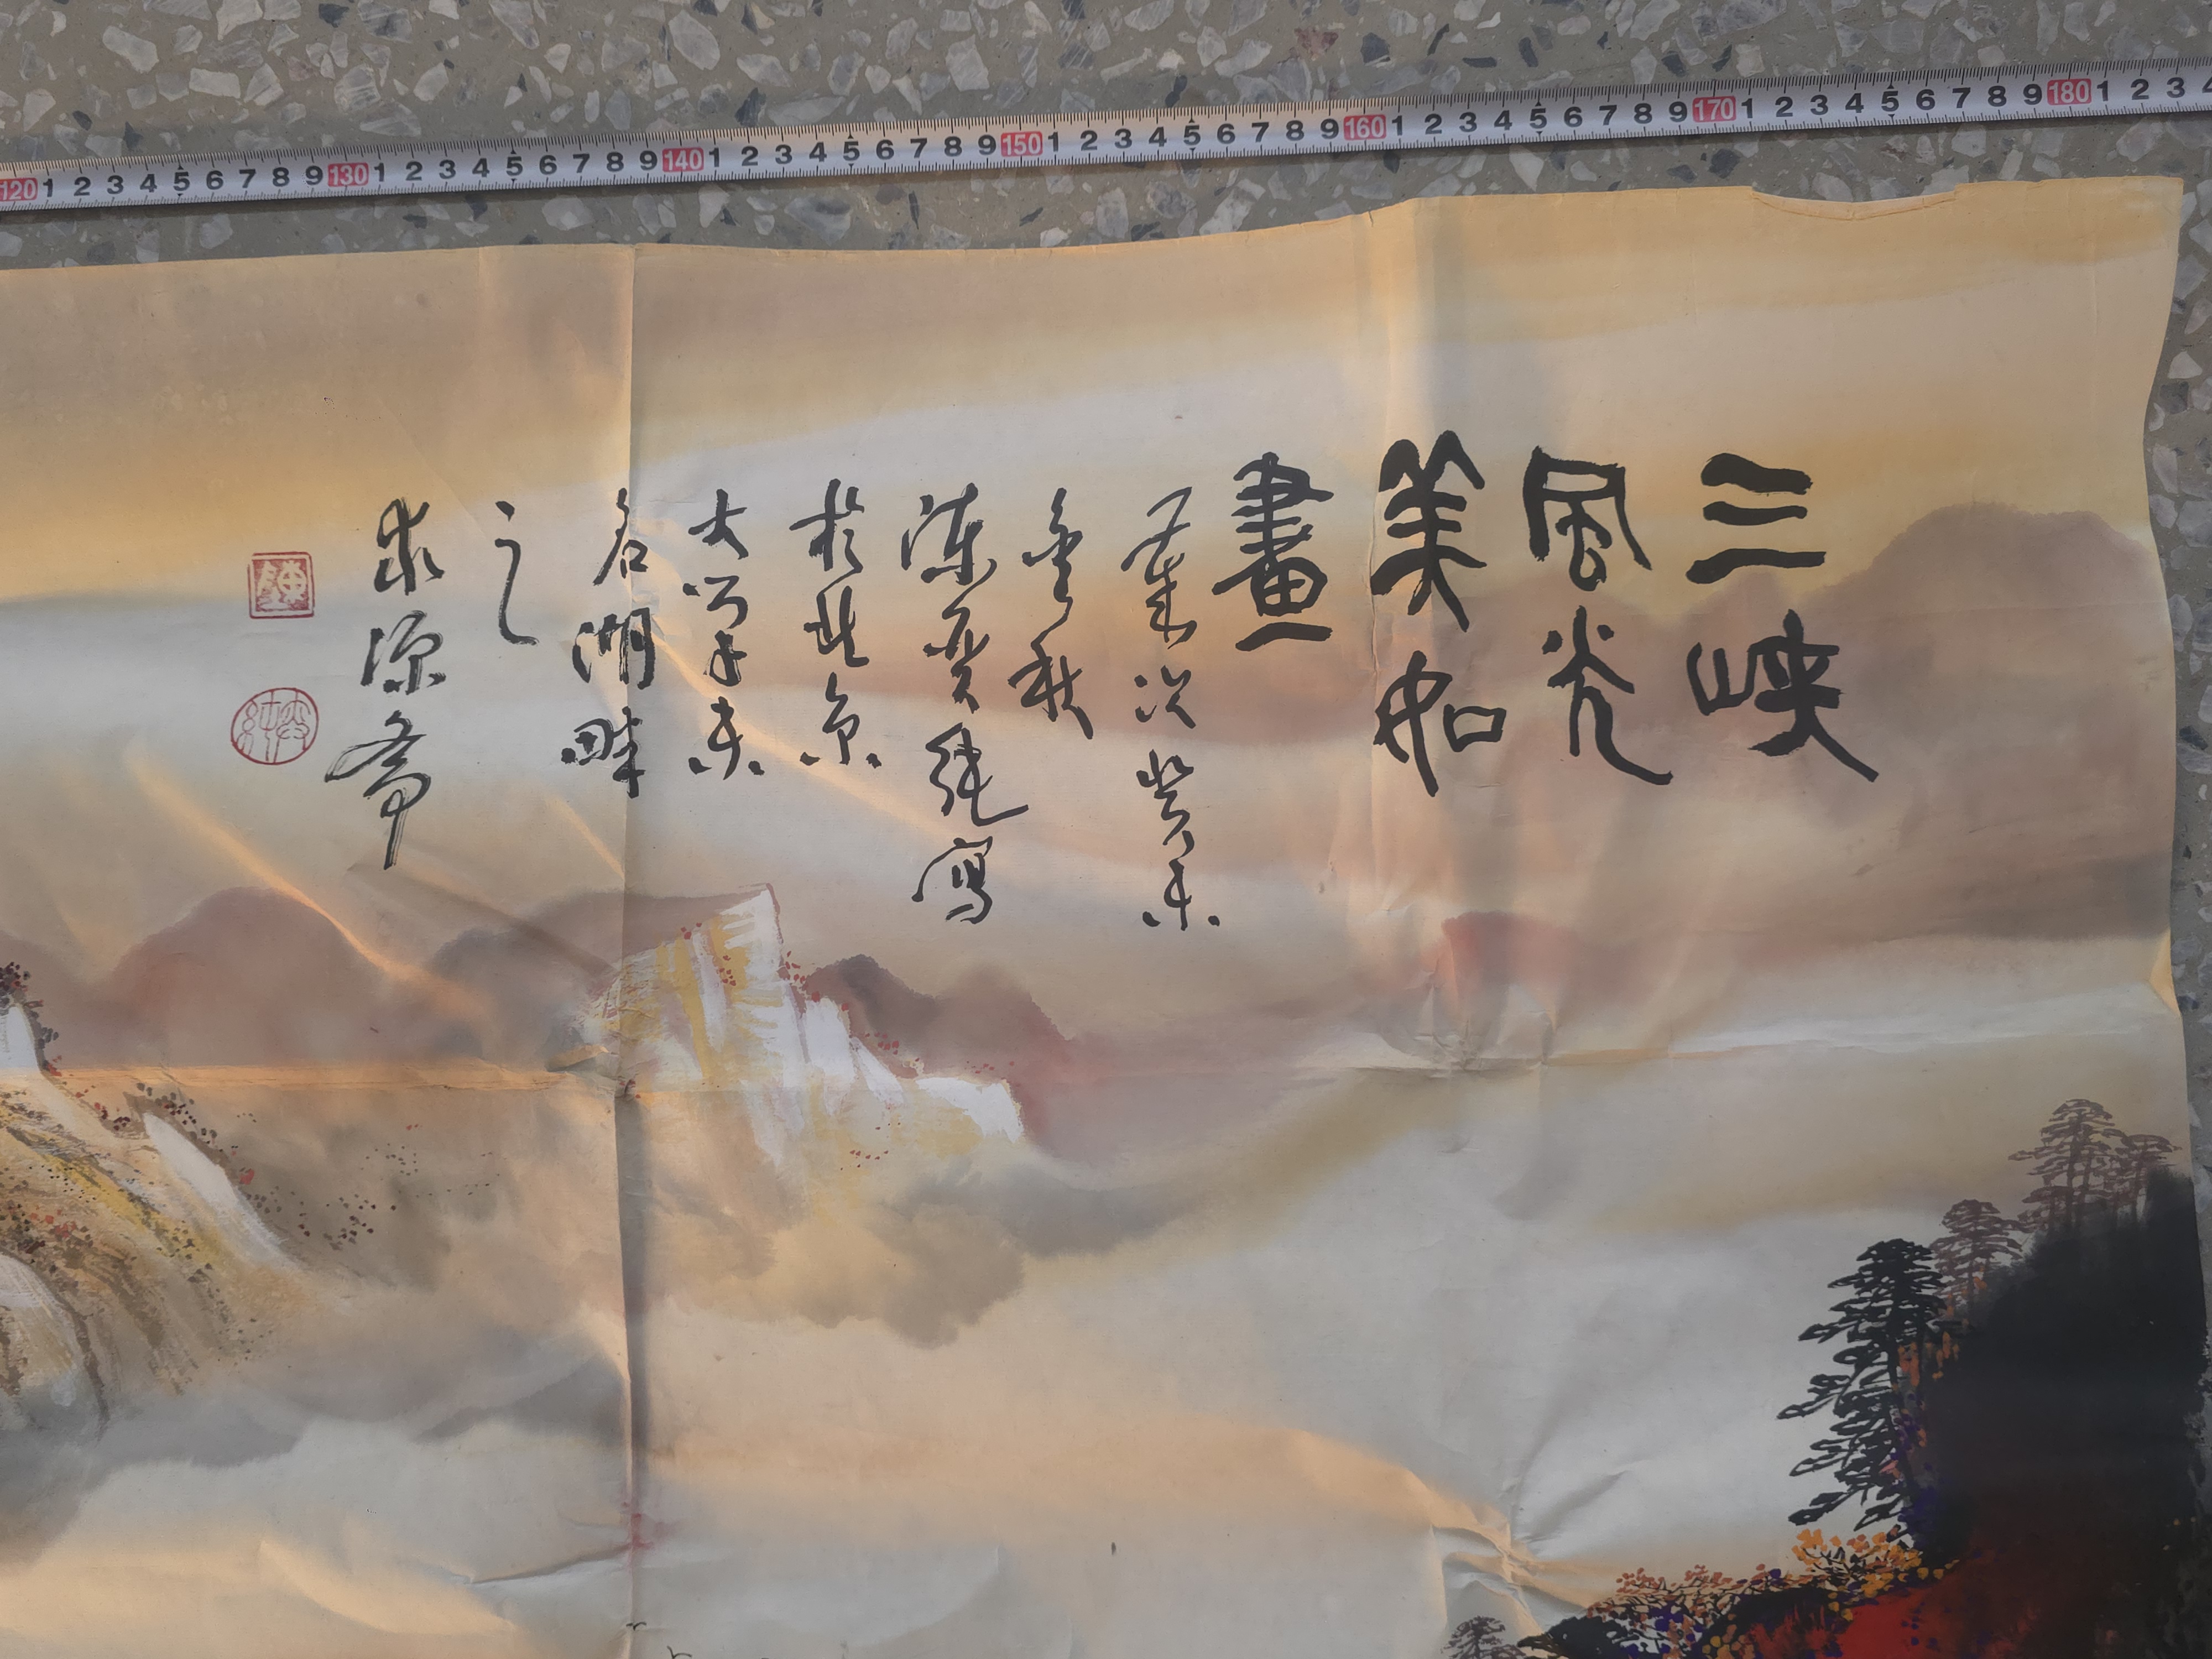 120 1 2 3 4 5 6 7 8 9 130 1 2 3 4 5 6 7 8 9 140 1 2 3 4 5 6 7 8 9 150 1 2 3 4 5 6 7 8 9 160 1 2 3 4 5 6 7 8 9 170 1 2 3 4 5 6 7 8 9 180 1 2 3 4
三峡
風光
美如
畫
歲次癸未
金秋
陳奕純寫
於北京
大學未
名湖畔
之
求源齋
陳
奕純